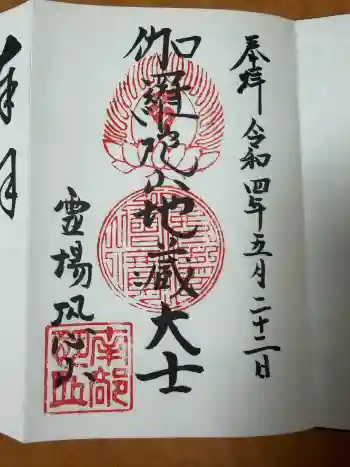 奉拝 令和四年五月二十二日
伽羅陀山地蔵大士
霊場恐山